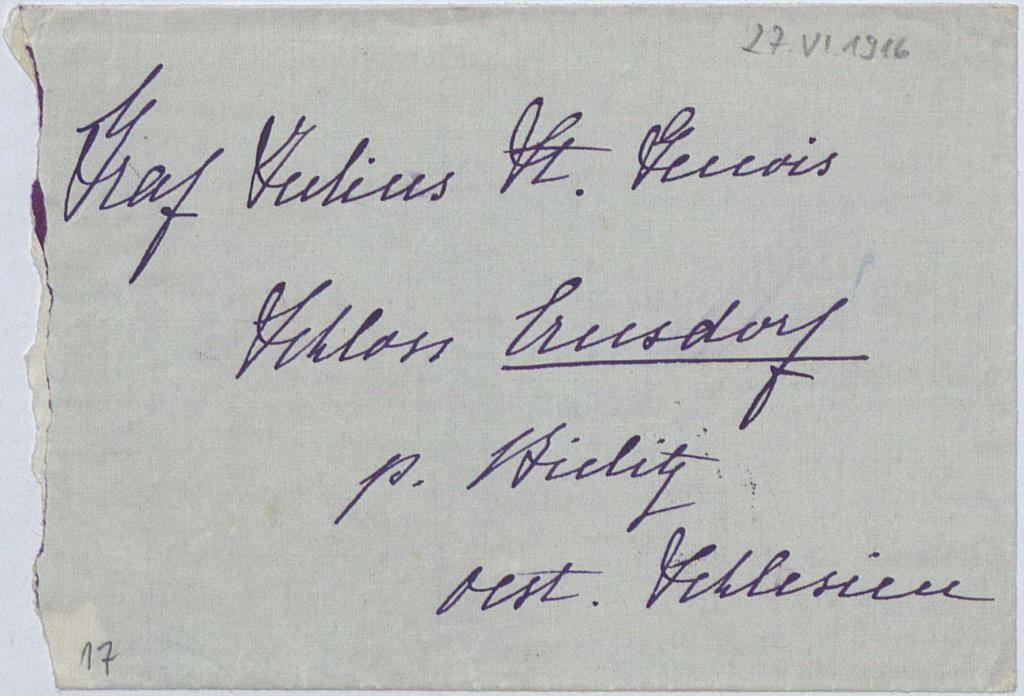 27. VI. 1916
Graf Julius St. Genois
Schloss Ernsdorf
p. Bielitz
oest. Schlesien
17